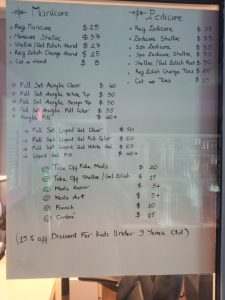 Manicure
Pedicure
Reg Manicure $25
Reg Pedicure $
Manicure Shellac $37
Pedicure Shellac $
Shellac/Gel Polish Hand $27
Spa Pedicure $
Reg Polish Change Hand $15
Spa Pedicure Shellac $
Cut Hand $8
Shellac/Gel Polish Feet $30
Reg Polish Change Toes $20
Cut Toes $15
Full Set Acrylic Clear $40
Full Set Acrylic White Tip $50
Full Set Acrylic Design Tip $50
Full Set Acrylic Full Color $55
Acrylic Fill $40+
Full Set Liquid Gel Clear $50
Full Set Liquid Gel Full Color $60
Full Set Liquid Gel White Gel $65
Liquid Gel Fill $40+
Take Off Fake Nails $20
Take Off Shellac/Gel Polish $15
Nails Repair $5+
Nails Art $5+
French $10
Ombre $15
(15% off Discount For Kids Under 9 Years Old)